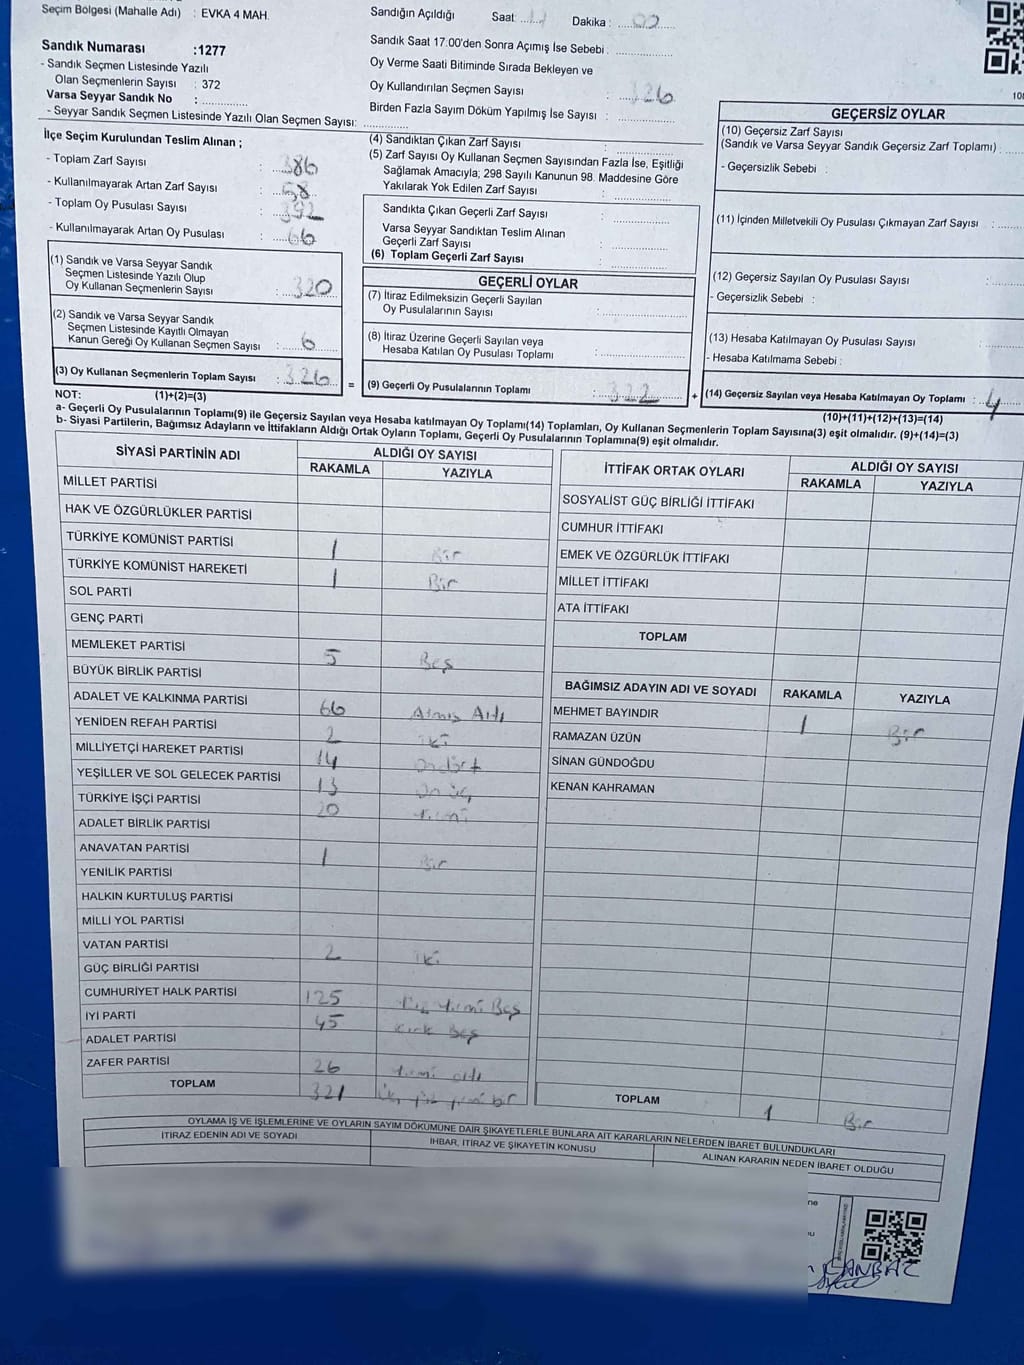 Seçim Bölgesi (Mahalle Adı) : EVKA 4 MAH.
Sandık Numarası :1277
- Sandık Seçmen Listesinde Yazılı
Olan Seçmenlerin Sayısı : 372
Varsa Seyyar Sandık No :
- Seyyar Sandık Seçmen Listesinde Yazılı Olan Seçmen Sayısı:
Sandığın Açıldığı Saat: Dakika :
Sandık Saat 17:00'den Sonra Açımış İse Sebebi :
Oy Verme Saati Bitiminde Sırada Bekleyen ve
Oy Kullandırılan Seçmen Sayısı : 326
Birden Fazla Sayım Döküm Yapılmış İse Sayısı :
İlçe Seçim Kurulundan Teslim Alınan ;
- Toplam Zarf Sayısı : 386
- Kullanılmayarak Artan Zarf Sayısı : 58
- Toplam Oy Pusulası Sayısı : 392
- Kullanılmayarak Artan Oy Pusulası : 66
(1) Sandık ve Varsa Seyyar Sandık
Seçmen Listesinde Yazılı Olup
Oy Kullanan Seçmenlerin Sayısı : 320
(2) Sandık ve Varsa Seyyar Sandık
Seçmen Listesinde Kayıtlı Olmayan
Kanun Gereği Oy Kullanan Seçmen Sayısı : 6
(3) Oy Kullanan Seçmenlerin Toplam Sayısı : 326 =
(4) Sandıktan Çıkan Zarf Sayısı :
(5) Zarf Sayısı Oy Kullanan Seçmen Sayısından Fazla İse, Eşitliği
Sağlamak Amacıyla; 298 Sayılı Kanunun 98. Maddesine Göre
Yakılarak Yok Edilen Zarf Sayısı :
Sandıkta Çıkan Geçerli Zarf Sayısı :
Varsa Seyyar Sandıktan Teslim Alınan
Geçerli Zarf Sayısı :
(6) Toplam Geçerli Zarf Sayısı :
GEÇERLİ OYLAR
(7) İtiraz Edilmeksizin Geçerli Sayılan
Oy Pusulalarının Sayısı :
(8) İtiraz Üzerine Geçerli Sayılan veya
Hesaba Katılan Oy Pusulası Toplamı :
(9) Geçerli Oy Pusulalarının Toplamı : 322 +
GEÇERSİZ OYLAR
(10) Geçersiz Zarf Sayısı
(Sandık ve Varsa Seyyar Sandık Geçersiz Zarf Toplamı) :
- Geçersizlik Sebebi :
(11) İçinden Milletvekili Oy Pusulası Çıkmayan Zarf Sayısı :
(12) Geçersiz Sayılan Oy Pusulası Sayısı :
- Geçersizlik Sebebi :
(13) Hesaba Katılmayan Oy Pusulası Sayısı :
- Hesaba Katılmama Sebebi :
(14) Geçersiz Sayılan veya Hesaba Katılmayan Oy Toplamı : 4
NOT: (1)+(2)=(3) (10)+(11)+(12)+(13)=(14)
a- Geçerli Oy Pusulalarının Toplamı(9) ile Geçersiz Sayılan veya Hesaba katılmayan Oy Toplamı(14) Toplamları, Oy Kullanan Seçmenlerin Toplam Sayısına(3) eşit olmalıdır. (9)+(14)=(3)
b- Siyasi Partilerin, Bağımsız Adayların ve İttifakların Aldığı Ortak Oyların Toplamı, Geçerli Oy Pusulalarının Toplamına(9) eşit olmalıdır.
SİYASİ PARTİNİN ADI ALDIĞI OY SAYISI
RAKAMLA YAZIYLA
MİLLET PARTİSİ
HAK VE ÖZGÜRLÜKLER PARTİSİ
TÜRKİYE KOMÜNİST PARTİSİ 1 Bir
TÜRKİYE KOMÜNİST HAREKETİ 1 Bir
SOL PARTİ
GENÇ PARTİ
MEMLEKET PARTİSİ 5 Beş
BÜYÜK BİRLİK PARTİSİ
ADALET VE KALKINMA PARTİSİ 66 Atmış Altı
YENİDEN REFAH PARTİSİ 2 iki
MİLLİYETÇİ HAREKET PARTİSİ 14 Ondört
YEŞİLLER VE SOL GELECEK PARTİSİ 13 On üç
TÜRKİYE İŞÇİ PARTİSİ 20 Yirmi
ADALET BİRLİK PARTİSİ
ANAVATAN PARTİSİ 1 Bir
YENİLİK PARTİSİ
HALKIN KURTULUŞ PARTİSİ
MİLLİ YOL PARTİSİ
VATAN PARTİSİ 2 iki
GÜÇ BİRLİĞİ PARTİSİ
CUMHURİYET HALK PARTİSİ 125 Yüz Yirmi Beş
İYİ PARTİ 45 Kırk Beş
ADALET PARTİSİ
ZAFER PARTİSİ 26 Yirmi altı
TOPLAM 321 Üç yüz yirmi bir
İTTİFAK ORTAK OYLARI ALDIĞI OY SAYISI
RAKAMLA YAZIYLA
SOSYALİST GÜÇ BİRLİĞİ İTTİFAKI
CUMHUR İTTİFAKI
EMEK VE ÖZGÜRLÜK İTTİFAKI
MİLLET İTTİFAKI
ATA İTTİFAKI
TOPLAM
BAĞIMSIZ ADAYIN ADI VE SOYADI RAKAMLA YAZIYLA
MEHMET BAYINDIR 1 Bir
RAMAZAN ÜZÜN
SİNAN GÜNDOĞDU
KENAN KAHRAMAN
TOPLAM 1 Bir
OYLAMA İŞ VE İŞLEMLERİNE VE OYLARIN SAYIM DÖKÜMÜNE DAİR ŞİKAYETLERLE BUNLARA AİT KARARLARIN NELERDEN İBARET BULUNDUKLARI
İTİRAZ EDENİN ADI VE SOYADI İHBAR, İTİRAZ VE ŞİKAYETİN KONUSU ALINAN KARARIN NEDEN İBARET OLDUĞU